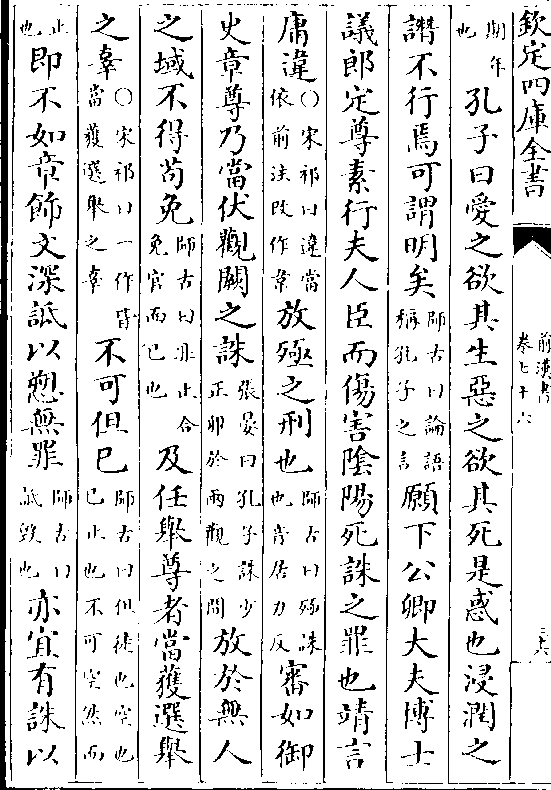 欽定四庫全書
前漢書
卷七十六
期年
也
孔子曰愛之欲其生惡之欲其死是惑也浸潤之
譖不行焉可謂明矣
師古曰論語
稱孔子之言
願下公卿大夫博士
議郎定尊素行夫人臣而傷害陰陽死誅之罪也靖言
庸違
○宋祁曰違當
依前法改作韋
放殛之刑也
師古曰殛誅
也音居力反
審如御
史章尊乃當伏觀闕之誅
張晏曰孔子誅少
正卯於兩觀之間
放於無人
之域不得苟免
師古曰非止合
免官而已也
及任舉尊者當獲選舉
之辜
○宋祁曰一作皆
當獲選舉之辜
不可但已
師古曰但徒也空也
已止也不可空然而
止
也
即不如章飾文深詆以愬無罪
師古曰
詆毀也
亦宜有誅以